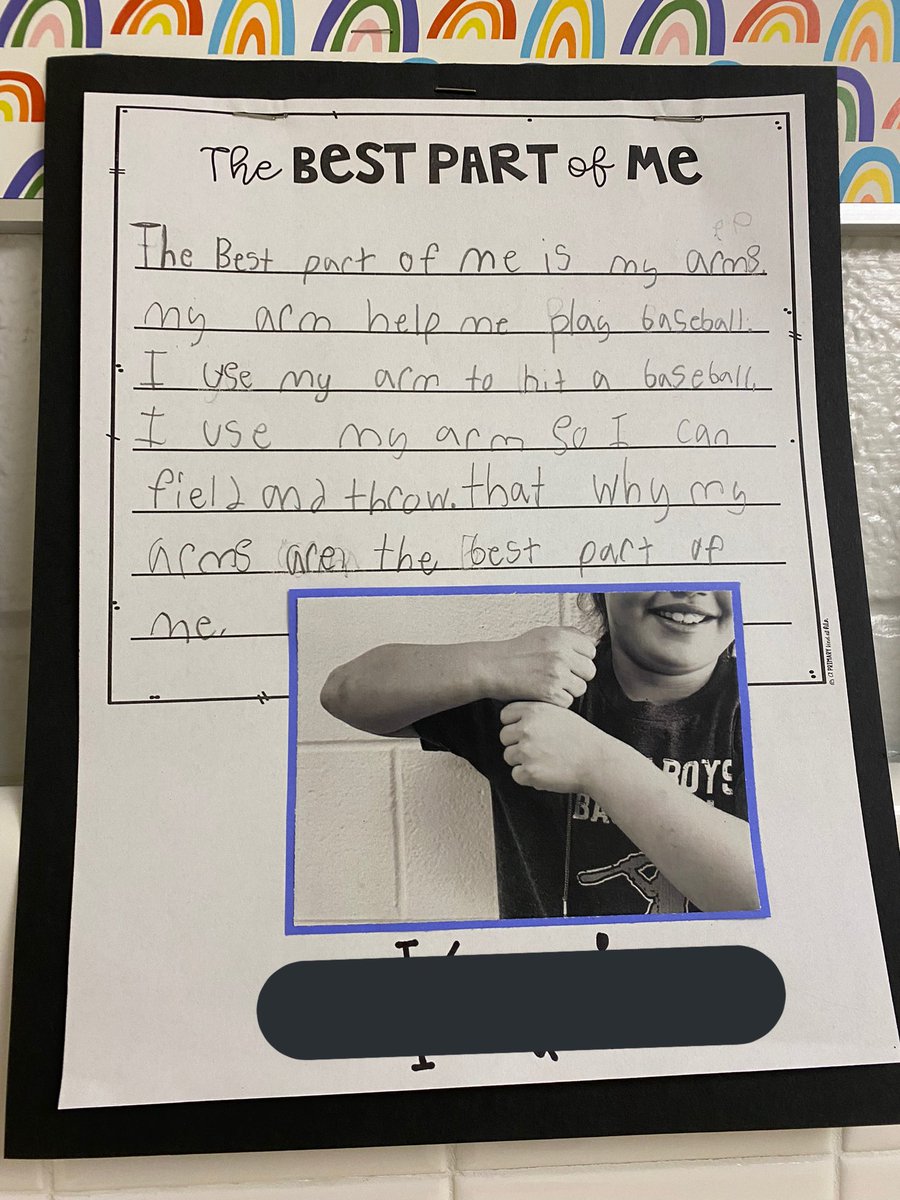 The BEST PART of Me
The Best part of me is my arms.
my arm help me play baseball.
I use my arm to hit a baseball.
I use my arm so I can
field and throw. that why my
arms are the best part of
me.